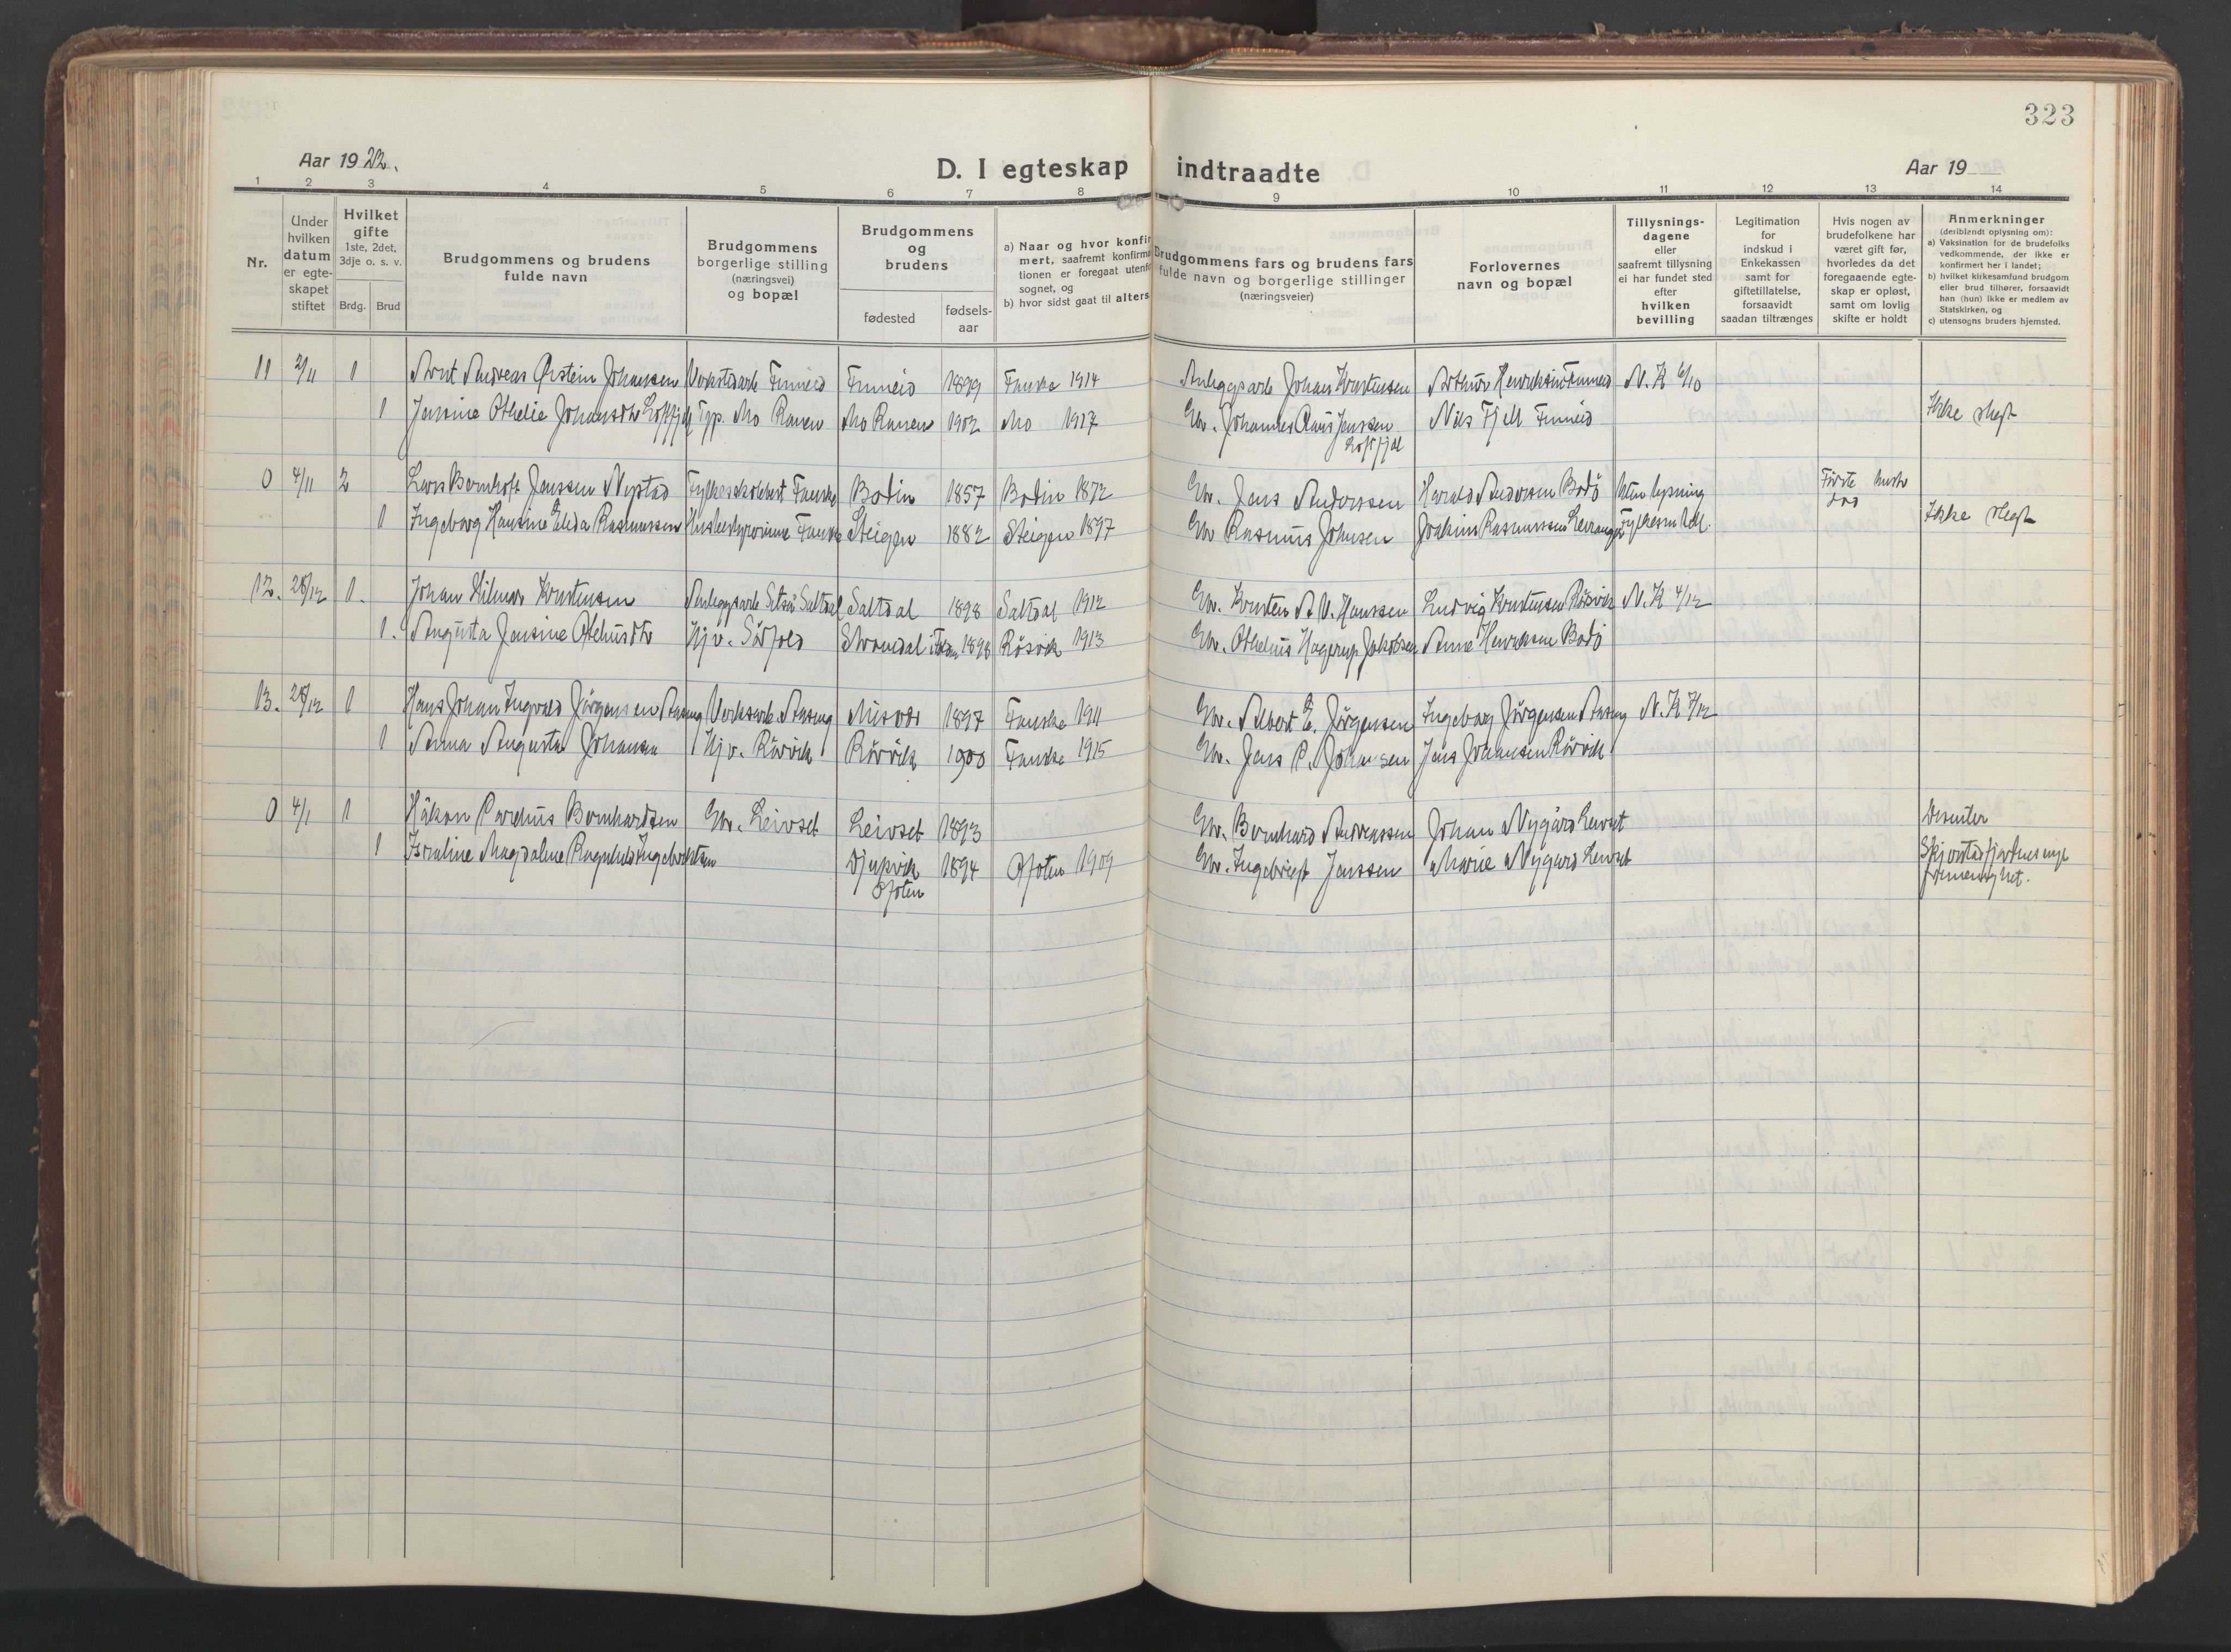 323
Aar 1922.
D. I egteskap indtraadte
Aar 19
1 2 3 4 5 6 7 8 9 10 11 12 13 14
Nr.
Under hvilken datum er egteskapet stiftet
Hvilket gifte 1ste, 2det, 3dje o. s. v.
Brdg. Brud
Brudgommens og brudens fulde navn
Brudgommens borgerlige stilling (næringsvei) og bopæl
Brudgommens og brudens
fødested
fødsels-aar
a) Naar og hvor konfir
mert, saafremt konfirma
tionen er foregaat utenfo
sognet, og
b) hvor sidst gaat til alters
Brudgommens fars og brudens fars
fulde navn og borgerlige stillinger
(næringsveier)
Forlovernes navn og bopæl
Tillysnings-
dagene
eller
saafremt tillysning
ei har fundet sted
efter
hvilken
bevilling
Legitimation
for
indskud i
Enkekassen
samt for
giftetillatelse,
forsaavidt
saadan tiltrænges
Hvis nogen av
brudefolkene har
været gift før,
hvorledes da det
foregaaende egte-
skap er opløst,
samt om lovlig
skifte er holdt
Anmerkninger
(deriblandt oplysning om):
a) Vaksination for de brudefolks
vedkommende, der ikke er
konfirmert her i landet;
b) hvilket kirkesamfund brudgom
eller brud tilhører, forsaavidt
han (hun) ikke er medlem av
Statskirken, og
c) utensogns bruders hjemsted.
11 2/11 1 Arnt Andreas Øistein Johansen Verkstedarb Finneid Finneid 1899 Fauske 1914 Anleggsarb Johan Kristensen Arthur Henriksen Finneid N. K 6/10
1 Jensine Othelie Johansdtr Loftfjell Tpp. Mo Ranen Mo Ranen 1902 Mo 1917 Gbr. Johannes Claus Janssen Nils Fjell Finneid Ikke slegt
Loftfjell
0 4/11 2 Lars Bernhoft Jenssen Nystad Fylkesskolebest Fauske Bodin 1857 Bodin 1872 Gbr. Jens Anderssen Harald Andersen Bodø Uten lysning Første hustr død
1 Ingeborg Hansine Elida Rasmussen Husbestyrerinne Fauske Steigen 1882 Steigen 1897 Gbr Rasmus Johnsen Joakim Rasmussen Leiranger Ikke slegt
12. 28/12 1. Johan Hilmar Kristensen Anleggsarb Setså Saltdal Saltdal 1898 Saltdal 1912 Gbr. Kristen A. U. Hanssen Ludvig Kristensen Røsvik N. K 4/12
1. Augusta Jensine Oteliusdtr Hjv. Sørfold 1898 Røsvik 1913 Gbr. Othelius Hagerup Jakobsen Anne Henriksen Bodø
13. 28/12 1 Hans Johan Ingvald Jørgensen Aaseng Verksarb. Aaseng Misvær 1897 Fauske 1911 Gbr. Albert E. Jørgensen Ingeborg Jørgensen Aaseng N. K 7/12
1 Anna Augusta Johansen Hjv. Rörvik Rörvik 1900 Fauske 1915 Gbr. Jens P. Johansen Jens Johansen Rörvik
0 4/1 1 Håkon Parelius Bernhardsen Gbr. Leivset Leivset 1893 Gbr. Bernhard Andreassen Johan Nygård Leivset Desenter
1 Israline Magdalene Ragnhild Ingebrigtsen Djupvik 1894 Ofoten 1909 Gbr. Ingebrigt Jenssen Marie Nygård Leivset
Ofoten